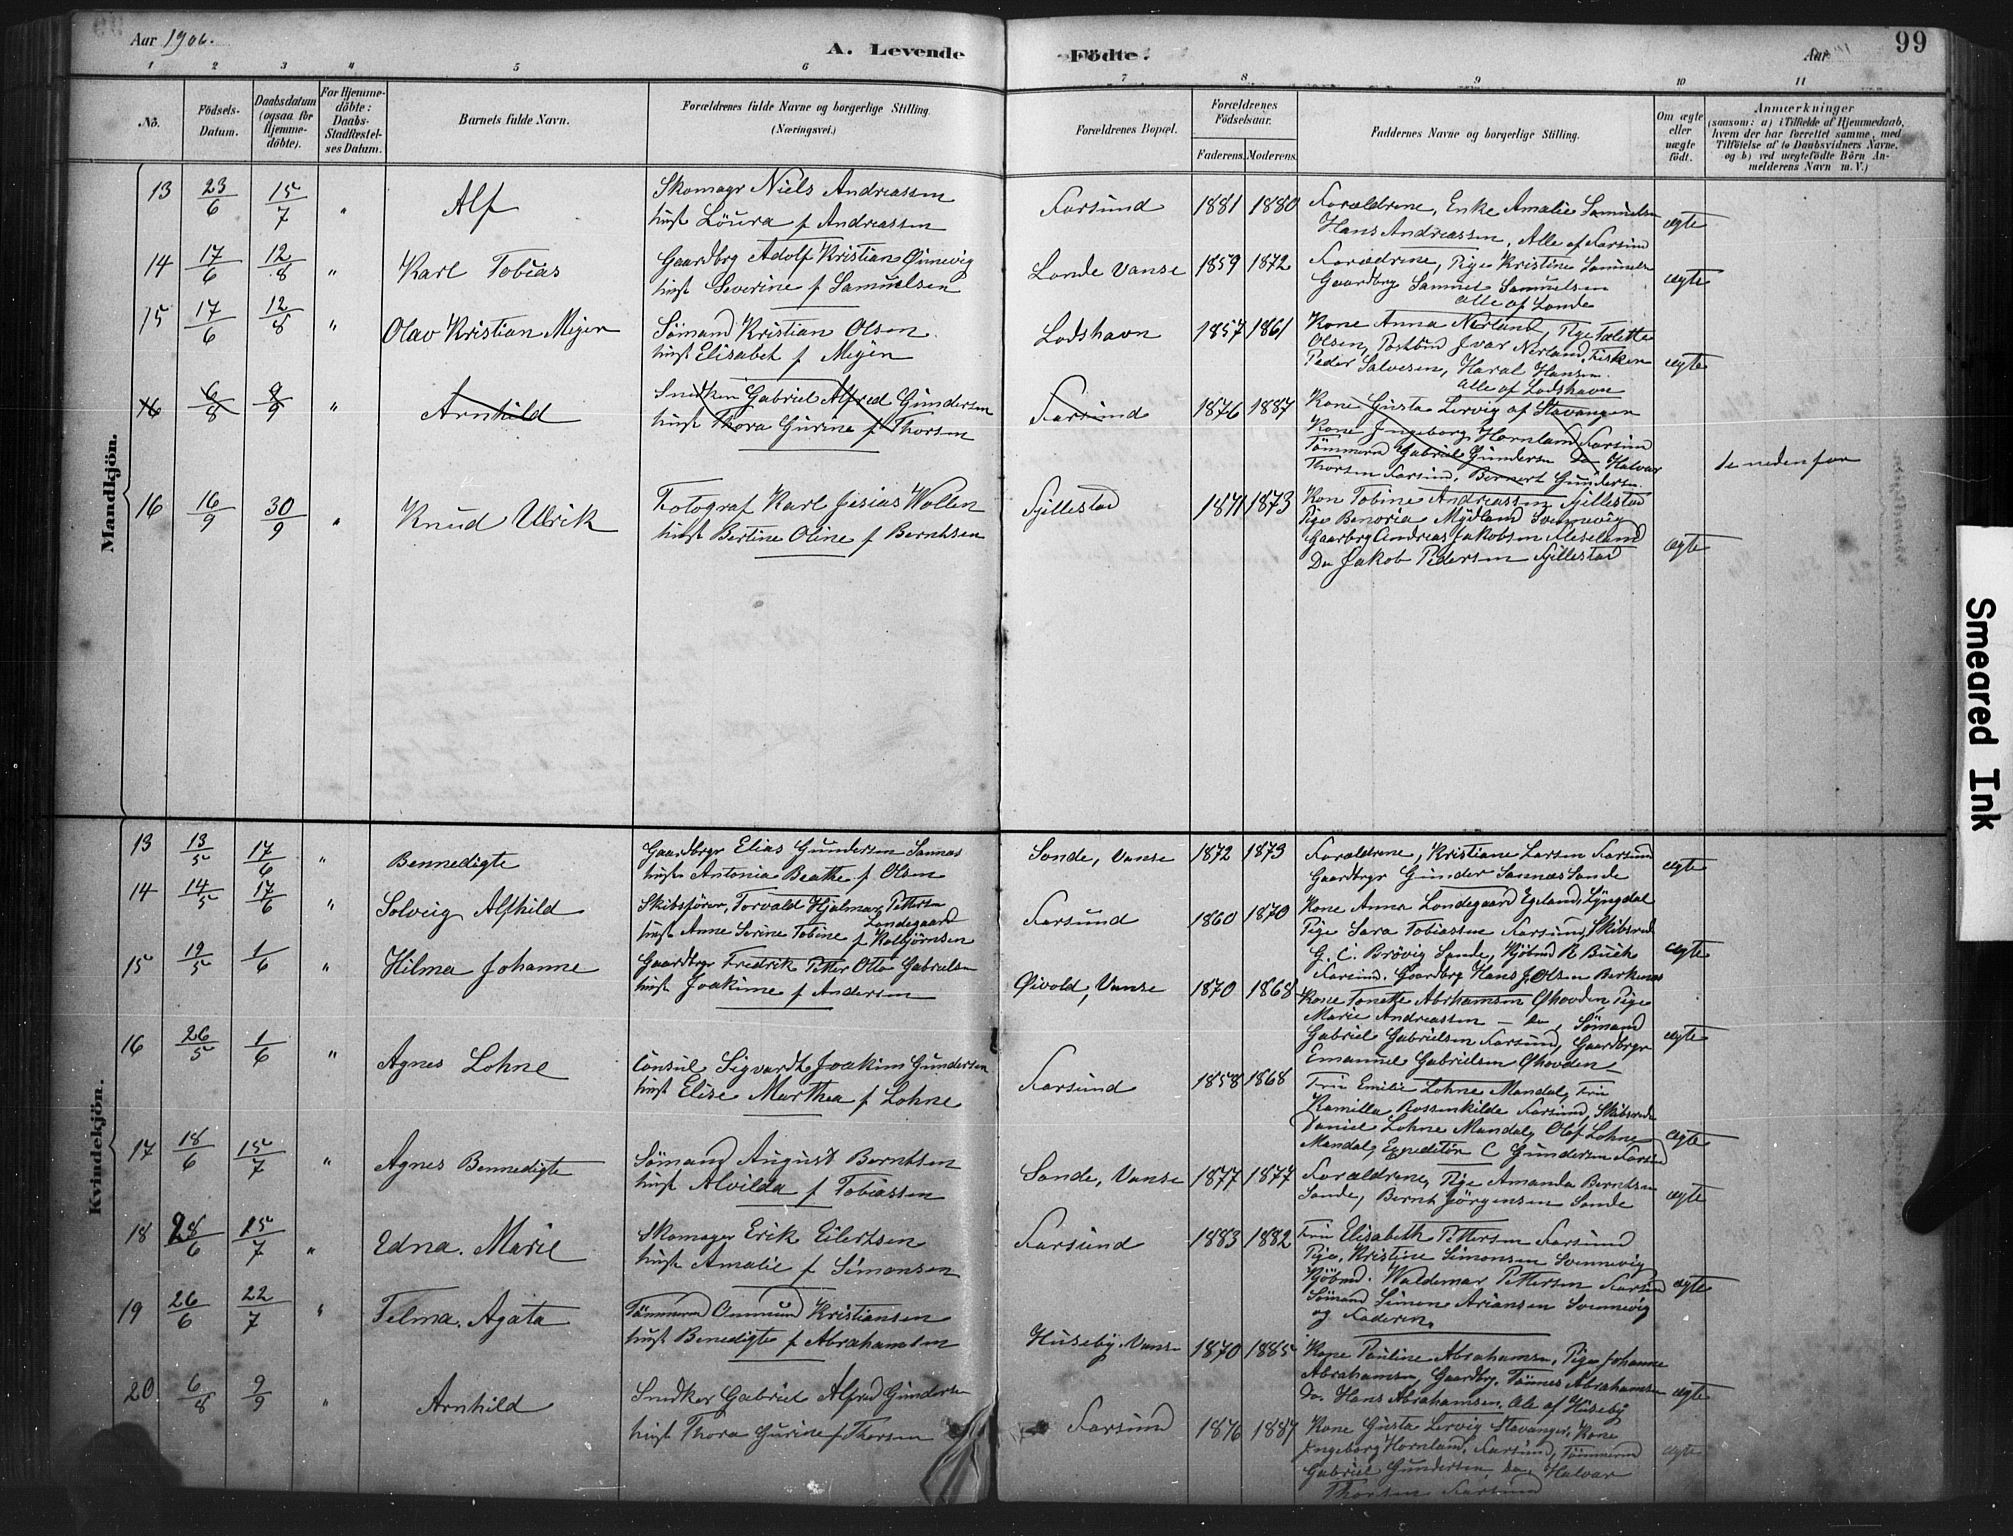 Aar 1906.
A. Levende Födte.
Aar
99
1 2 3 4 5 6 7 8 9 10 11
No.
Födsels-Datum.
Daabsdatum (ogsaa for Hjemme-döbte).
For Hjemme-döbte: Daabs-Stadfæstel-ses Datum.
Barnets fulde Navn.
Forældrenes fulde Navne og borgerlige Stilling (Næringsvei.)
Forældrenes Bopæl.
Forældrenes Födselsaar.
Faderens. Moderens.
Faddernes Navne og borgerlige Stilling.
Om ægte eller uægte födt.
Anmærkninger
(saasom: a) i Tilfælde af Hjemmedaab, hvem der har forrettet samme, med Tilföielse af to Daabsvidners Navne, og b) ved uægtefödte Börn An-melderens Navn m. V.)
Mandkjön.
13 23/6 15/7 " Alf
Skomagr Niels Andreassen
hust Løura f Andreassen
Farsund 1881 1880
Forældrene, Enke Amalie Samuelsen
Hans Andreassen, Alle af Farsund
ægte
14 17/6 12/8 " Karl Tobias
Gaardbrg Adolf Kristian Ønnevig
hust Severine f Samuelsen
Londe Vanse 1859 1872
Foreædrene, Pige Kristine Samuels
Gaardbrg Samuel Samuelsen
alle af Londe
ægte
15 17/6 12/8 " Olav Kristian Meyer
Sömand Kristian Olsen
hust Elisabet f Meyer
Lodshavn 1857 1861
Kone Anna Nerland, Pige Talette
Olsen, Postbud Ivar Nerland, Fisker
Peder Salvesen, Haral Hansen
alle af Lodshavn
ægte
16 6/8 9/9 " Arnhild
Snedker Gabriel Alfred Gundersen
hust Thora Gurine f Thorsen
Farsund 1876 1887
Kone Gusta Lervig af Stavanger
Kone Ingeborg Hornland Farsund
Tömmermd Gabriel Gundersen Do Halvar
Thorsen Farsund, Berner Gundersen
se nedenfor
16 16/9 30/9 " Knud Ulrik
Fotograf Karl Jesias Wollen
hust Bertine Oline f Berntsen
Fjillestad 1871 1873
Kon Tobine Andreassen Fjillestad
Pige Benoria Mydland Svennevig
Gaarbrg Andreas Jakobsen Meseland
Do Jakob Pedersen Fjillestad
ægte
Kvindekjön.
13 13/5 17/6 " Bennedigte
Gaardbrgr Elias Gundersen Sannes
hust Antonia Beathe f Olsen
Sande, Vanse 1872 1873
Forældrene, Kristiane Larsen Farsund
Gaardbrgr Gunder Sannes Sande
ægte
14 14/5 17/6 " Solveig Alfhild
Skibsförer, Torvald Hjalmar Pettersen Londegaard
hust Anne Serine Tobine f Kolbjörnsen
Farsund 1860 1870
Kone Anna Londegaard Egeland, Lyngdal
Pige Sara Tobiassen Farsund, Skibsred
G. C. Brövig Sande, Kjöbmd R Buch
Farsund. Gaardbrg Hans J. Olsen Berknes
ægte
15 12/5 1/6 " Hilma Johanne
Gaardbrgr Fredrik Petter Otto Gabrielsen
hust Joakime f Andersen
Øivold, Vanse 1870 1868
Kone Tonette Abrhamsen Ohovden Pige
Marie Andreassen - do, Sömand
Gabriel Gabrielsen Farsund, Gaardbrgr
Emanuel Gabrielsen Ohovden
ægte
16 26/5 1/6 " Agnes Lohne
Consul Sigvardt Joakim Gundersen
hust Elise Marthea f Lohne
Farsund 1858 1868
Fru Emilie Lohne Mandal, Fru
Kamilla Rossenkilde Farsund, Skibsrede
Daniel Lohne Mandal, Olof Lohne
Mandal, Expeditör C Gundersen Farsund
ægte
17 18/6 15/7 " Agnes Bennedigte
Sömand August Berntsen
hust Alvilda f Tobiassen
Sande, Vanse 1877 1877
Forældrene, Pige Amanda Berntsen
Sande, Bernt Jörgensen Sande
ægte
18 28/6 15/7 " Edna. Marie
Skomager Erik Eilertsen
hust Amalie f Simonsen
Farsund 1883 1882
Fru Elisabeth Pettersen Farsund
Pige, Kristine Simonsen Svennevig
Kjöbmd. Waldemar Pettersen Farsund
Sömand Simon Ariansen Svennevig
og Faderen.
ægte
19 26/6 22/7 " Telma. Agata
Tömmermd Ommund Kristiansen
hust Benedigte f Abrahamsen
Huseby. Vanse 1870 1885
Kone Pauline Abrahamsen, Pige Johanne
Abrahamsen, Gaardbrg. Tönnes Abrahamsen
do. Hans Abrahamsen, Alle af Huseby
ægte
20 6/8 9/9 " Arnhild
Snedker Gabriel Alfred Gundersen
hust Thora Gurine f Thorsen
Farsund 1876 1887
Kone Gusta Lervig Stavanger, Kone
Ingeborg Hornland, Farsund, Tömmermd
Gabriel Gundersen, do Halvar
Thorsen Farsund
ægte
Smeared Ink